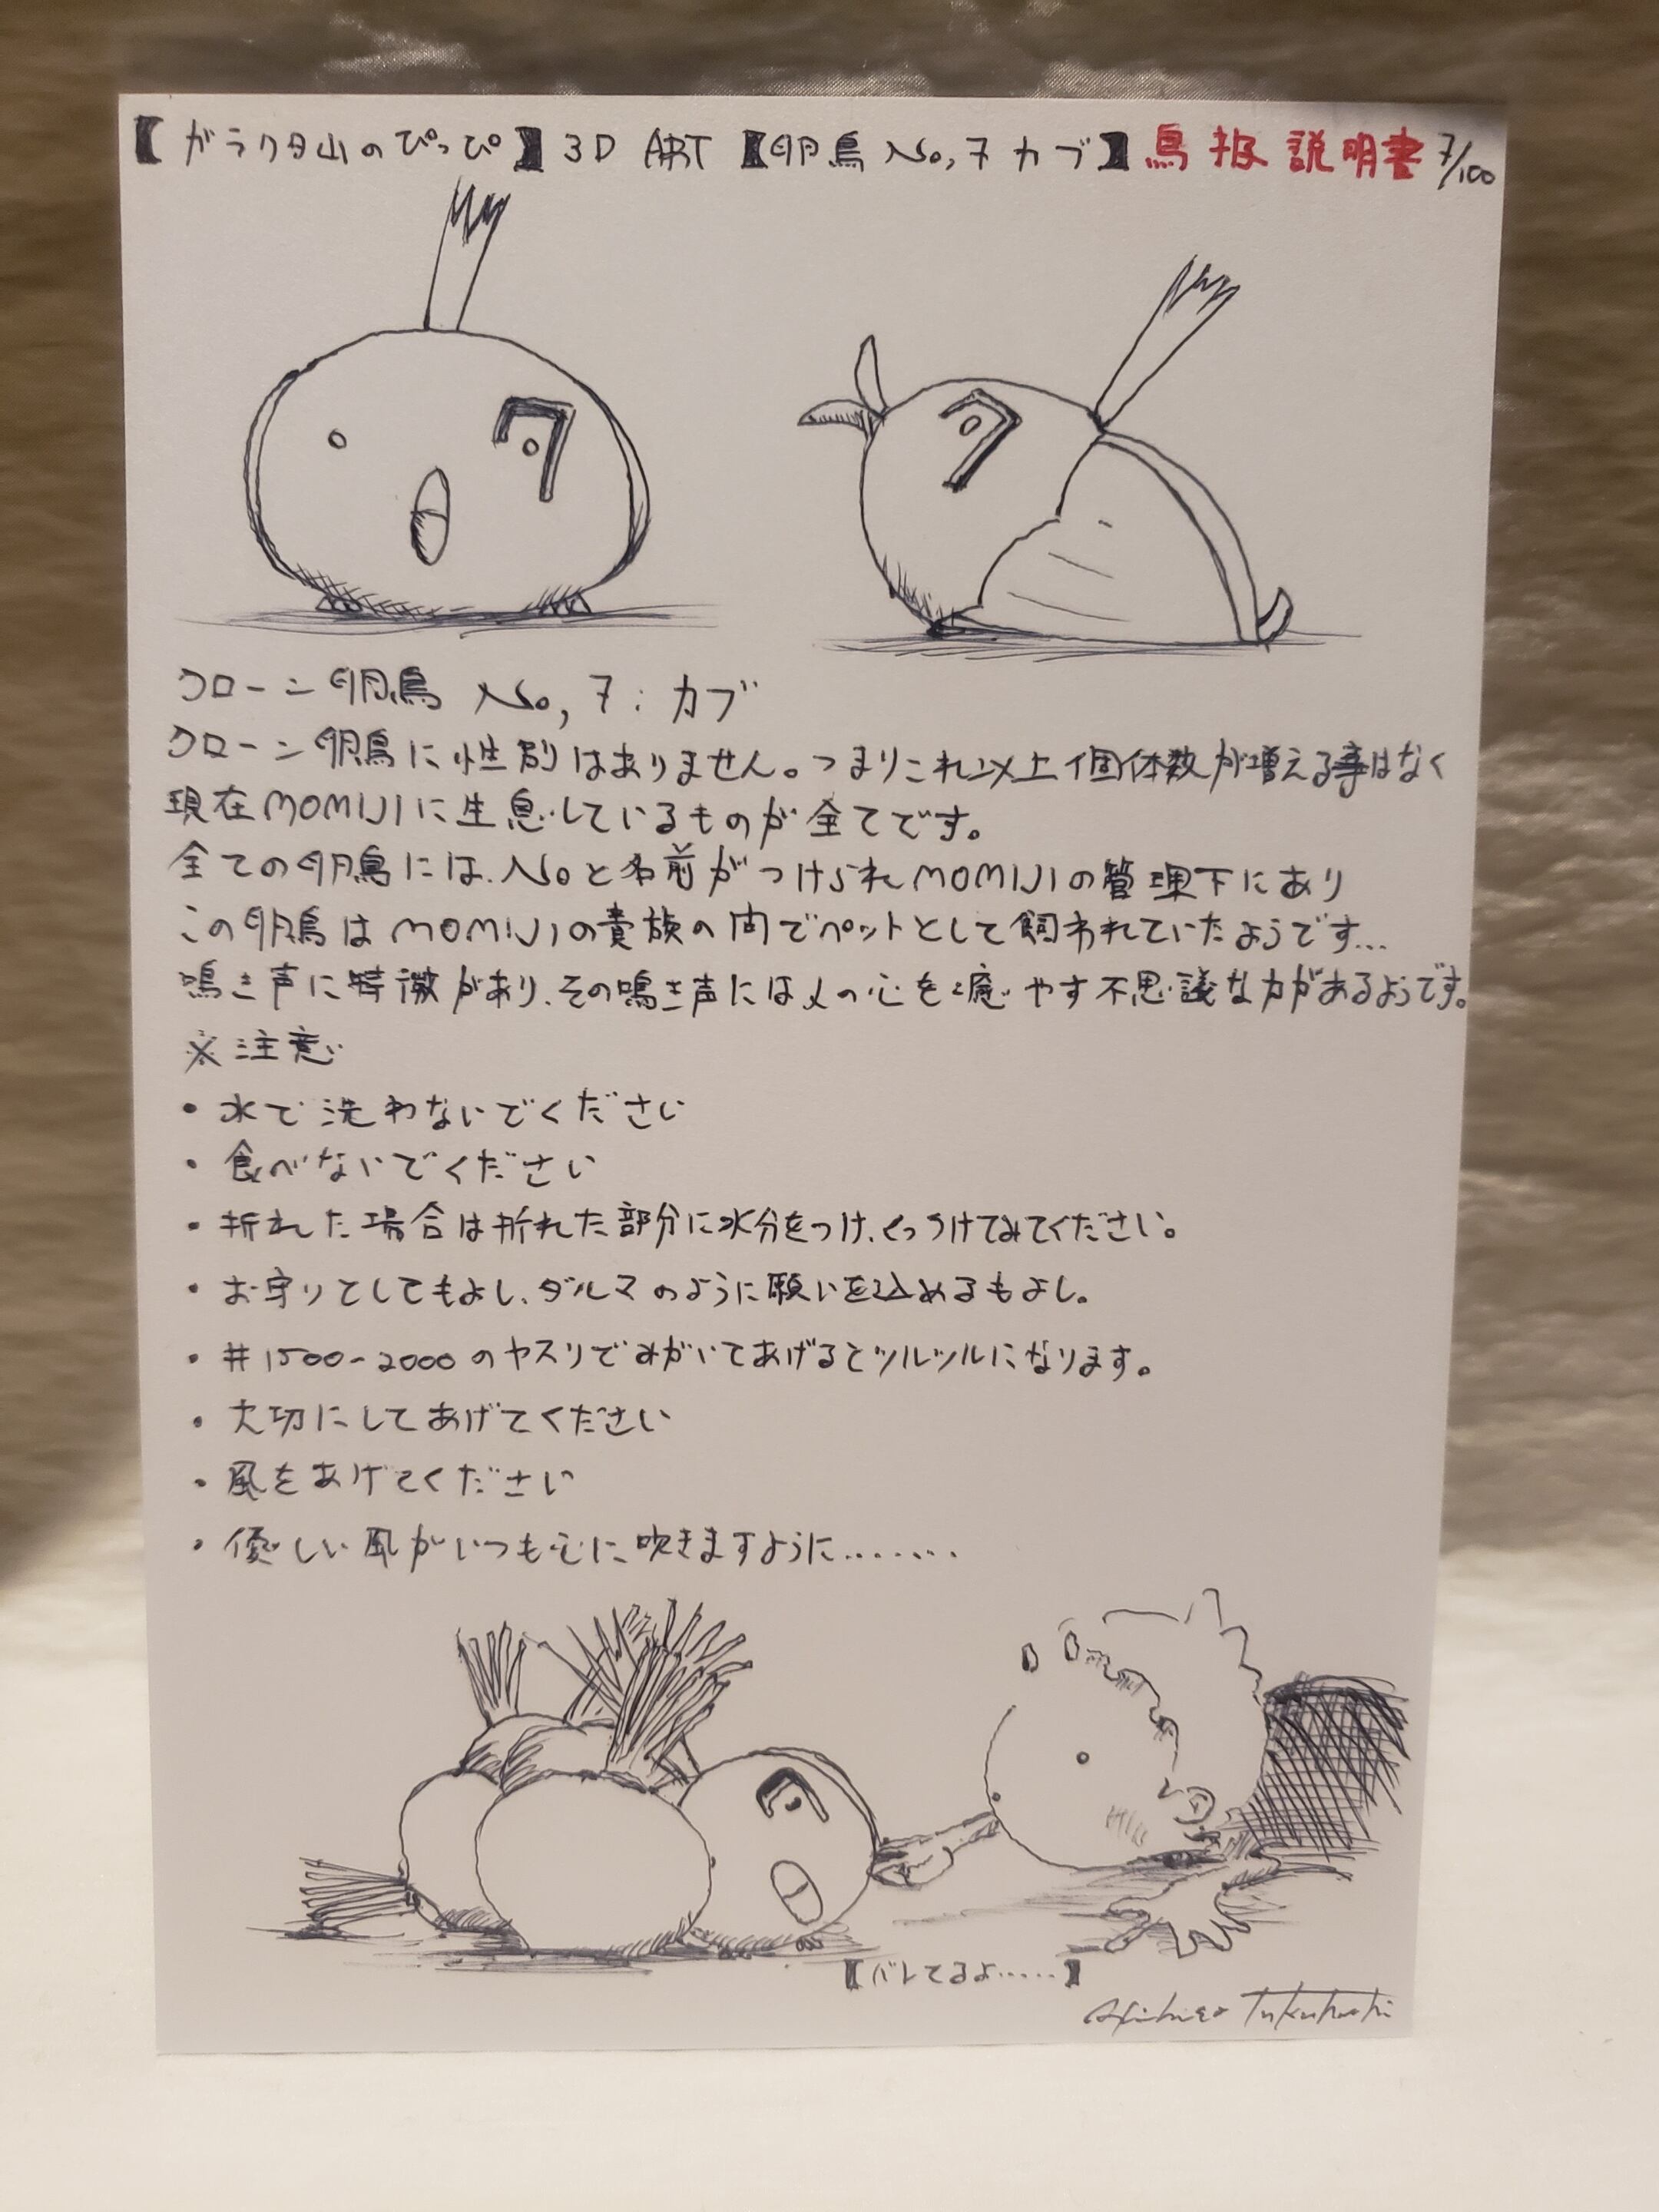 【ガラクタ山のぴっぴ】3D ART【卵鳥 No,7 カブ】鳥扱説明書 7/100
クローン卵鳥 No,7:カブ
クローン卵鳥に性別はありません。つまりこれ以上個体数が増える事はなく
現在MOMIJIに生息しているものが全てです。
全ての卵鳥には、Noと名前がつけられMOMIJIの管理下にあり
この卵鳥はMOMIJIの貴族の間でペットとして飼われていたようです...
鳴き声に特徴があり、その鳴き声には人の心を癒やす不思議な力があるようです。
※注意
・水で洗わないでください
・食べないでください
・折れた場合は折れた部分に水分をつけ、くっつけてみてください。
・お守りとしてもよし、ダルマのように願いを込めるもよし。
・#1500-2000のヤスリでみがいてあげるとツルツルになります。
・大切にしてあげてください
・風をあげてください
・優しい風がいつも心に、吹きますように........
ク
ク
ク
【バレてるよ.....】